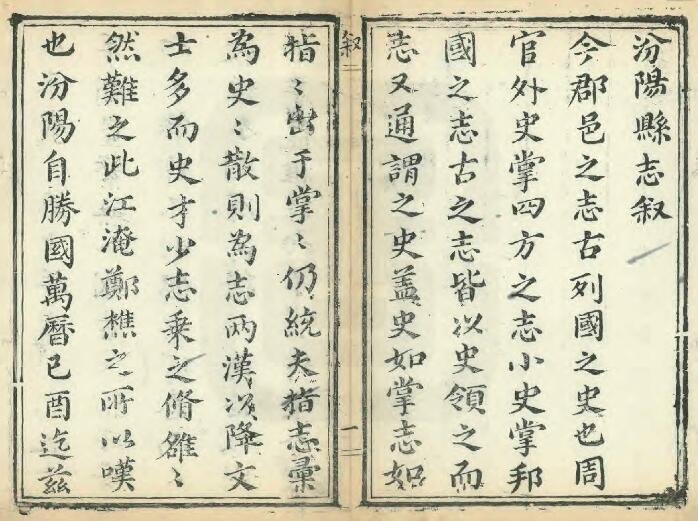 汾陽縣志叙
今郡邑之志古列國之史也周
官外史掌四方之志小史掌邦
國之志古之志皆以史領之而
志又通謂之史盖史如掌志如
叙
一
指〻出于掌〻仍統夫指志彙
為史〻散則為志兩漢以降文
士多而史才少志乗之脩雖〻
然難之此江淹鄭樵之所以嘆
也汾陽自勝國萬曆己酉迄兹